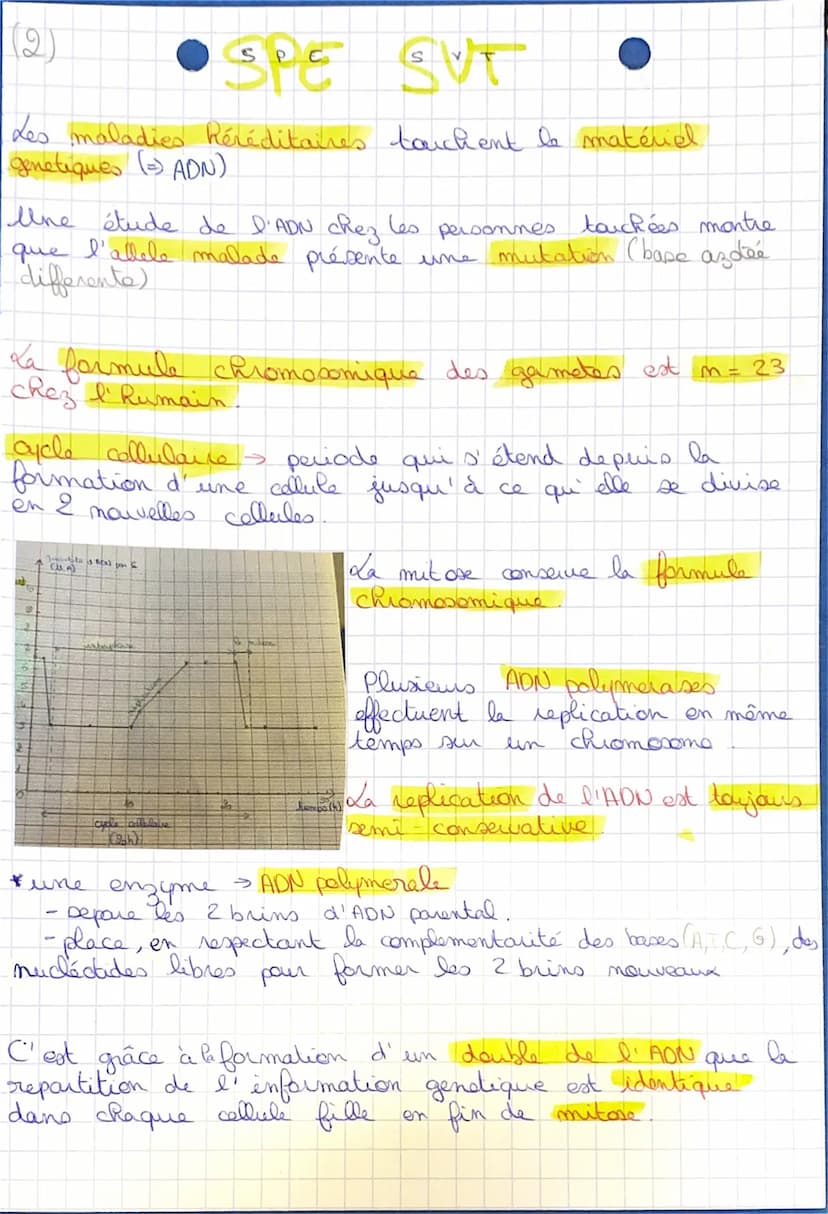 (2)
SPE SVT
S P E S V T
Les maladies héréditaires touchent le matériel
genetiques (=> ADN)
Une étude de l'ADN chez les personnes touchées montre
que l'allele malade présente une mutation (base azotée
differente)
La formule chromosomique des gametes est n = 23
chez l'humain.
cycle cellulaire → periode qui s'étend depuis la
formation d'une cellule jusqu'à ce qu'elle se divise
en 2 nouvelles cellules.
La mitose conserve la formule
chromosomique.
interphase
mitose
replication
10
20
temps (h)
cycle cellulaire
(20h)
Plusieurs ADN polymerases
effectuent la replication en même
temps sur un chromosome.
La replication de l'ADN est toujours
semi-conservative.
* une enzyme → ADN polymerale
- separe les 2 brins d'ADN parental.
- place, en respectant la complementarité des bases (A,T,C,G), des
nucléotides libres pour former les 2 brins nouveaux
C'est grâce à la formation d'un double de l'ADN que la
repartition de l'information genetique est identique
dans chaque cellule fille en fin de mitose.